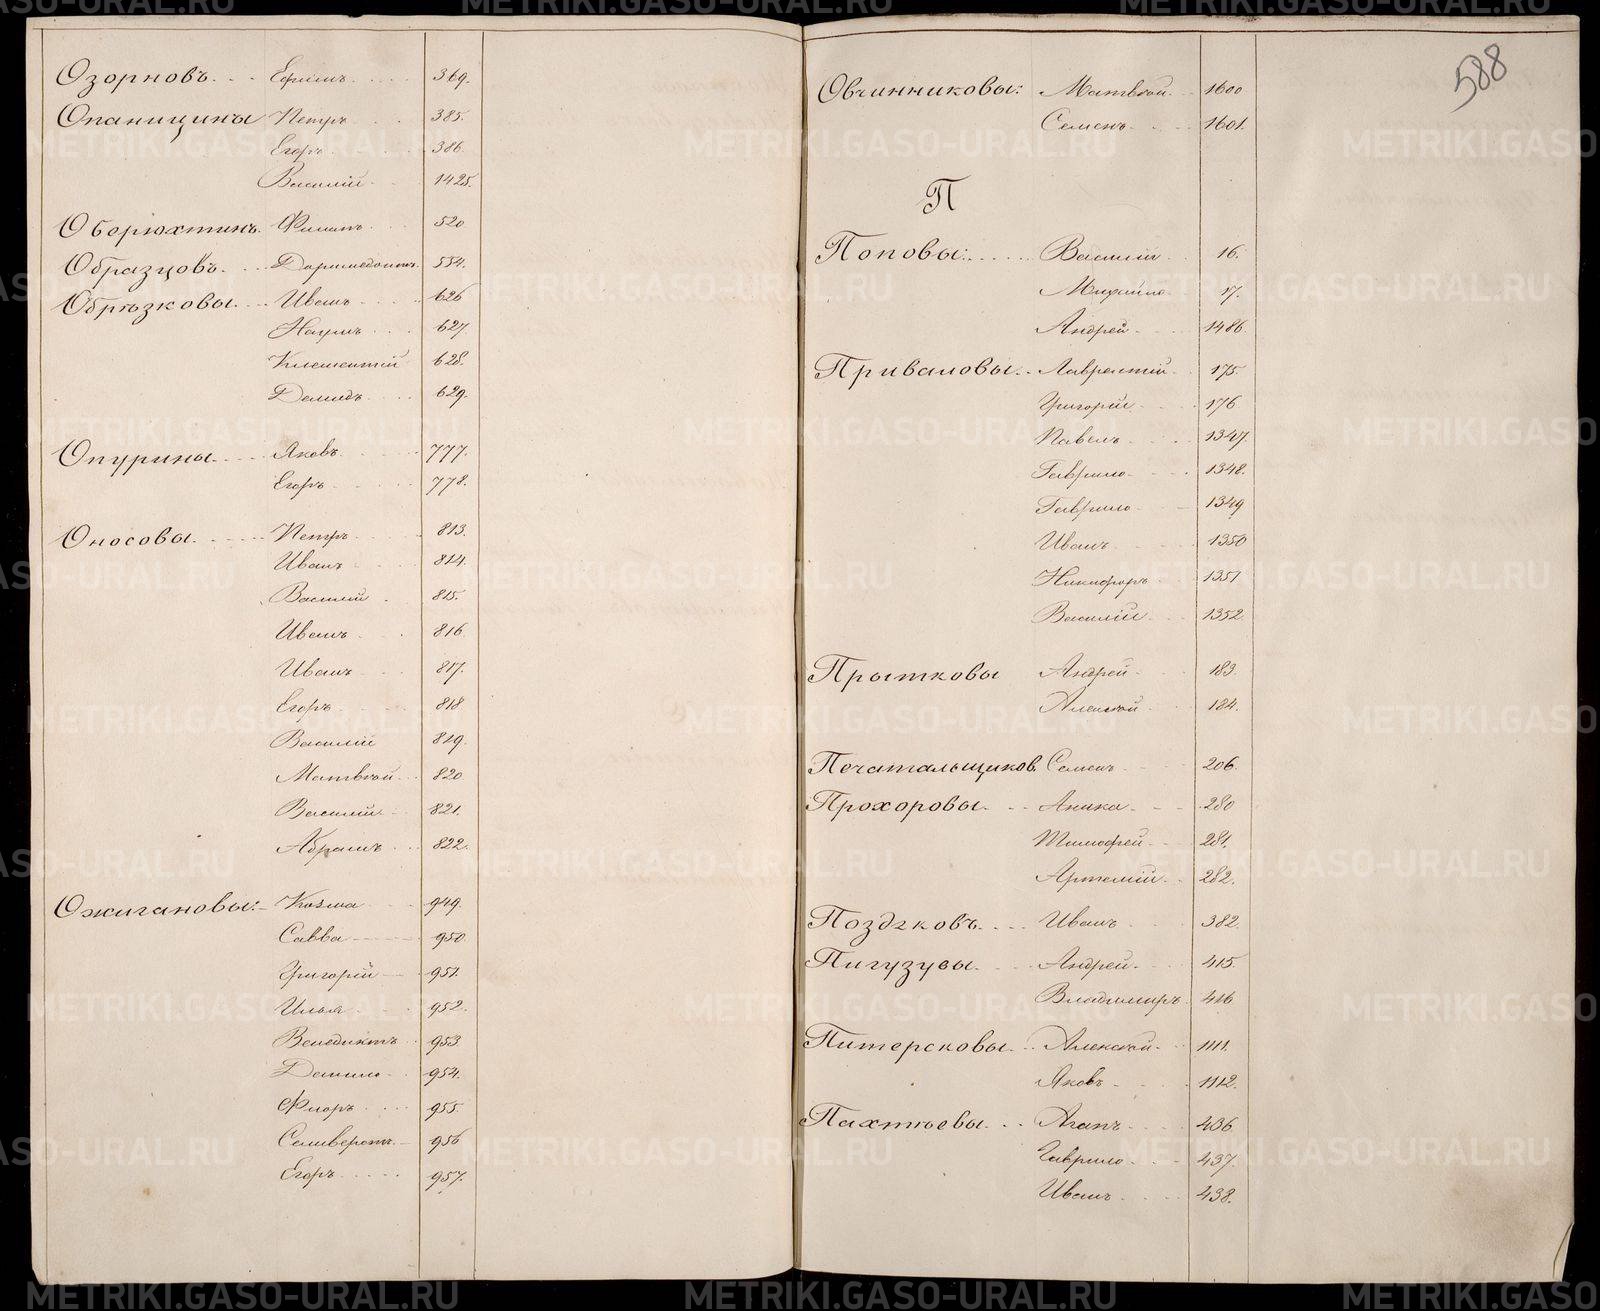 Озорновъ Ефимъ 369.
Опаницины Петръ 385.
Егоръ 386.
Василій 1425.
Оберюхтинъ Филипъ 520
Образцовъ Доримедонтъ 554.
Обрѣзковы Иванъ 626
Наумъ 627
Клементій 628.
Демидъ 629.
Опурины Яковъ 777.
Егоръ 778.
Оносовы Петръ 813.
Иванъ 814.
Василій 815.
Иванъ 816.
Иванъ 817.
Егоръ 818
Василій 819.
Матвѣй 820
Василій 821.
Абрамъ 822.
Ожигановы: Козма 949.
Савва 950
Григорій 951.
Илья 952.
Венедиктъ 953
Данило 954.
Флоръ 955.
Селиверстъ 956
Егоръ 957.
588
Овчинниковы: Матвѣй 1600
Семенъ 1601.
П
Поповы: Василій 16.
Михайло 17.
Андрей 1486.
Приваловы Лаврентій 175.
Григорій 176
Павелъ 1347.
Гаврило 1348.
Гаврило 1349
Иванъ 1350
Никифоръ 1351
Василій 1352.
Прытковы Андрей 183.
Алексѣй 184.
Печатальщиков Семенъ 206.
Прохоровы Аника 280
Тимофей 281.
Артемій 282.
Поздяковъ Иванъ 382.
Пигузовы Андрей 415.
Владимиръ 416
Питерсковы Алексѣй 1111.
Яковъ 1112.
Пахтѣевы Агапъ 436
Гаврило 437.
Иванъ 438.
METRIKI.GASO-URAL.RU